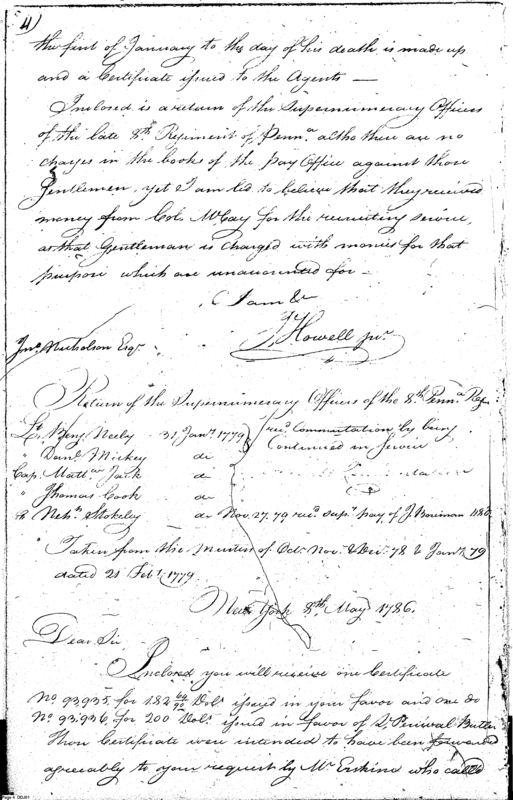 4)
the first of January to the day of his death is made up
and a Certificate issued to the Agents —
Inclosed is a return of the Supernumerary Officers
of the late 8th Regiment of Penna altho there are no
charges in the books of the pay Office against those
Gentlemen, yet I am led to believe that they received
money from Col. McCay for the recruiting service,
as that Gentleman is charged with monies for that
purpose which are unaccounted for —
I am &c
J Howell jr.
Jno. Nicholson Esqr
Return of the Supernumerary Officers of the 8th Penna Reg
Lt Benj Neely 31 Jany 1779 recd Commutation by being
" Danl Mickey do Continued in Service
Cap. Mattw Jack do
" Thomas Cook do
Lt Nehh Stokely do Nov. 27. 79 recd supy pay of J. Boreman
Taken from the Musters of Octr Novr & Decr 78 & Jany 79
dated 21 Feby 1779
New York 8th May 1786.
Dear Sir,
Inclosed you will receive one Certificate
No 93.935. for 182 64/90 Dols issued in your favor and one do
No 93.936. for 200 Dols issued in favor of Lt Percival Butler
These Certificate were intended to have been forwarded
agreeably to your request by Mr Erskine who called